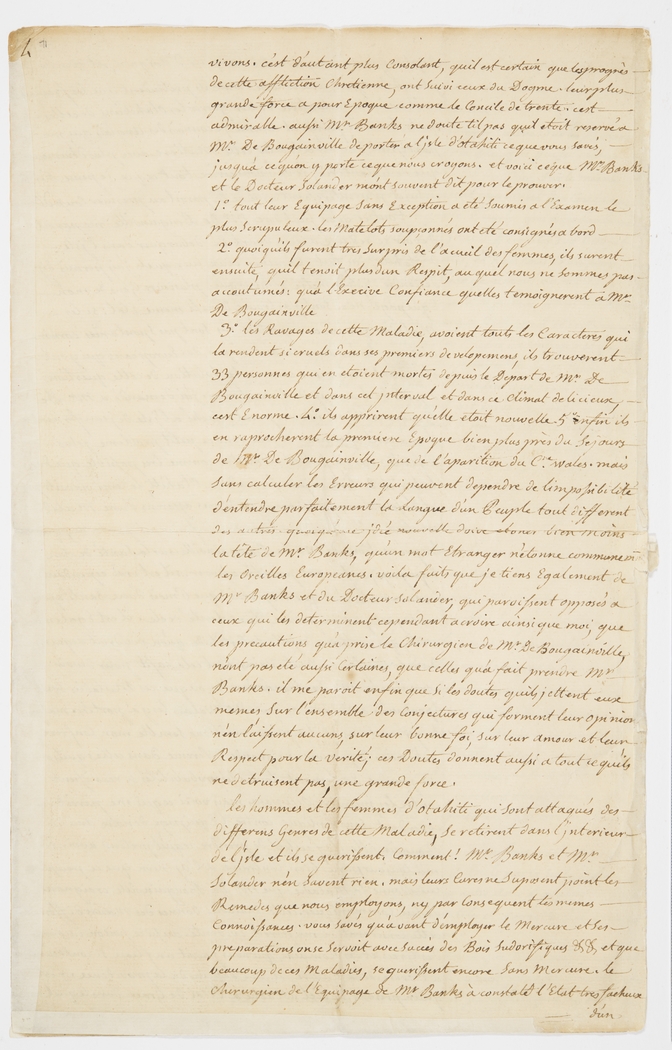 4
vivons. c'est d'autant plus Consolant, qu'il est certain que les progrès
de cette affliction Chretienne, ont suivi ceux du Dogme. leur plus
grande force a pour Epoque comme le Concile de trente. c'est
admirable. aussi Mr. Banks ne doute til pas qu'il etoit reservé a
Mr. De Bougainville de porter a l'jsle d'otahiti ce que vous savés,
jusqu'a ce qu'on y porte ce que nous croyons. et voici ce que Mr. Banks
et le Docteur Solander m'ont souvent dit pour le prouver.
1º. tout leur Equipage Sans Exception a été Soumis a l'Examen le
plus Scrupuleux. les Matelots soupçonnés ont été consignés a bord
2º. quoiqu'ils furent tres Surpris de l'acueil des femmes, ils surent
ensuite, qu'il tenoit plus d'un Respit, au quel nous ne sommes pas
accoutumés: qu'a l'Excive Confiance quelles temoignerent a Mr.
De Bougainville
3º. les Ravages de cette Maladie, avoient touts les Caracteres qui
la rendent si cruels dans ses premiers developemens, ils trouverent
33 personnes qui en etoient mortes depuis le Depart de Mr. De
Bougainville et dans cet jnterval et dans ce climat delicieux,
c'est Enorme. 4º. ils apprirent qu'elle etoit nouvelle 5º enfin ils
en raprocherent la premiere Epoque bien plus près du Sejours
de Mr. De Bougainville, que de l'aparition du Cne. wales. mais
sans calculer les Erreurs qui peuvent dependre de l'impossibilité
d'entendre parfaitement la Langue d'un Peuple tout different
des autres quoique jdée nouvelle doive etoner bien moins
la tête de Mr. Banks, qu'un mot Etranger n'etonne communem
les Oreilles Européanes. voila faits que je tiens Egalement de
Mr Banks et du Docteur Solander, qui paroissent opposés a
ceux qui les determinent cependant a croire ainsi que moi, que
les precautions qu'a prise le Chirurgien de Mr. De Bougainville,
n'ont pas eté aussi Certaines, que celles qu'a fait prendre Mr.
Banks. il me paroit enfin que si les doutes qu'ils jettent eux
memes Sur l'ensemble des Conjectures qui forment leur Opinion
n'en laissent aucuns, sur leur bonne foi, sur leur amour et leur
Respect pour la verité; ces Doutes donnent aussi a tout ce qu'ils
ne detruisent pas, une grande force.
les hommes et les femmes d'otahiti qui sont attaqués des
differens Genres de cette Maladie, se retirent dans l'jnterieur
de l'jsle et ils se guerissent. Comment! Mr. Banks et Mr.
Solander n'en savent rien. mais leurs Cures ne Suposent point les
Remedes que nous employons, ny par Consequent les mêmes
Connoissances. vous savés qu'avant d'employer le Mercure et Ses
preparations on se servoit avec succès des Bois Sudorifiques && et que
beaucoup de ces Maladies, se guerissent encore Sans Mercure. le
Chirurgien de l'Equipage de Mr Banks à constaté l'Etat tres facheux
d'un